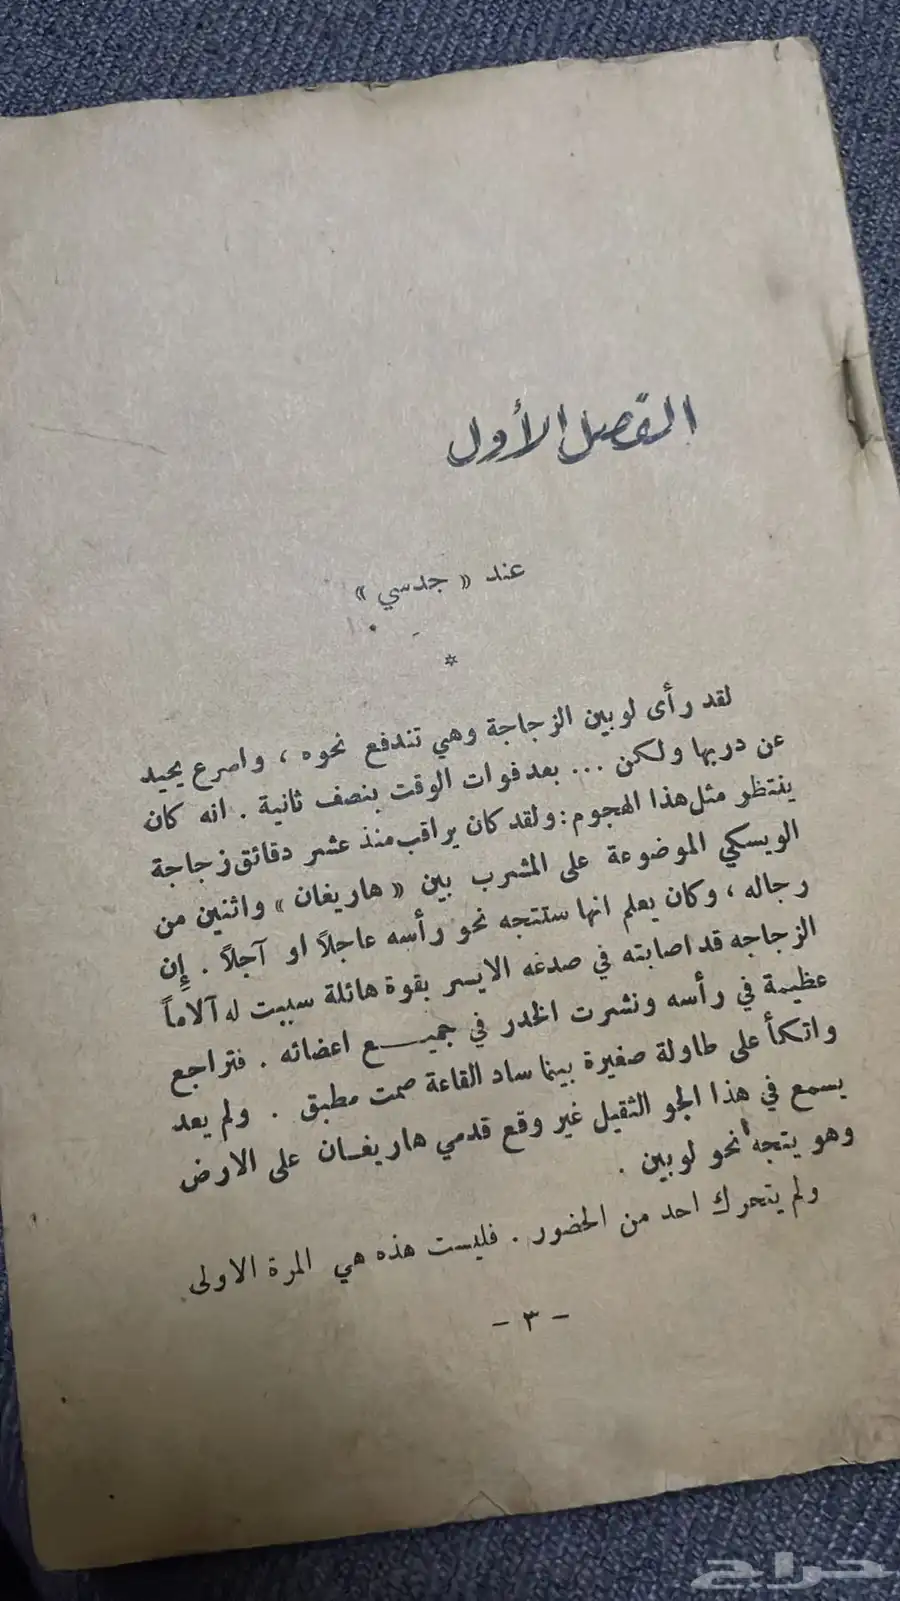 الفصل الأول
عند « جدسي »
*
لقد رأى لوبين الزجاجة وهي تندفع نحوه ، واسرع يحيد
عن دربها ولكن ... بعد فوات الوقت بنصف ثانية . انه كان
ينتظر مثل هذا الهجوم : ولقد كان يراقب منذ عشر دقائق زجاجة
الويسكي الموضوعة على المشرب بين « هاريغان » واثنين من
رجاله ، وكان يعلم انها ستتجه نحو رأسه عاجلاً او آجلاً . إن
الزجاجه قد اصابته في صدغه الايسر بقوة هائلة سببت له آلاماً
عظيمة في رأسه ونشرت الخدر في جميع اعضائه . فتراجع
واتكأ على طاولة صغيرة بينما ساد القاعة صمت مطبق . ولم يعد
يسمع في هذا الجو الثقيل غير وقع قدمي هاريغان على الارض
وهو يتجه نحو لوبين .
ولم يتحرك احد من الحضور . فليست هذه هي المرة الاولى
- ٣ -
حراج